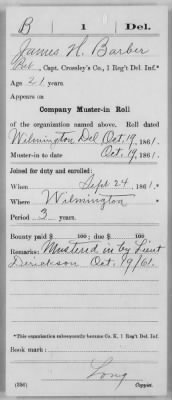 B | 1 | Del.
James H. Barber
Pvt, Capt. Crossley's Co., 1 Reg't Del. Inf.*
Age 21 years.
Appears on
Company Muster-in Roll
of the organization named above. Roll dated
Wilmington Del Oct. 19, 1861.
Muster-in to date Oct. 19, 1861.
Joined for duty and enrolled:
When Sept 24, 1861.*
Where Wilmington
Period 3 years.
Bounty paid $ 100; due $ 100
Remarks: Mustered in by Lieut
Derickson Oct. 19/61.
*This organization subsequently became Co. K, 1 Reg't Del. Inf.
Book mark:
Long
(356) Copyist.